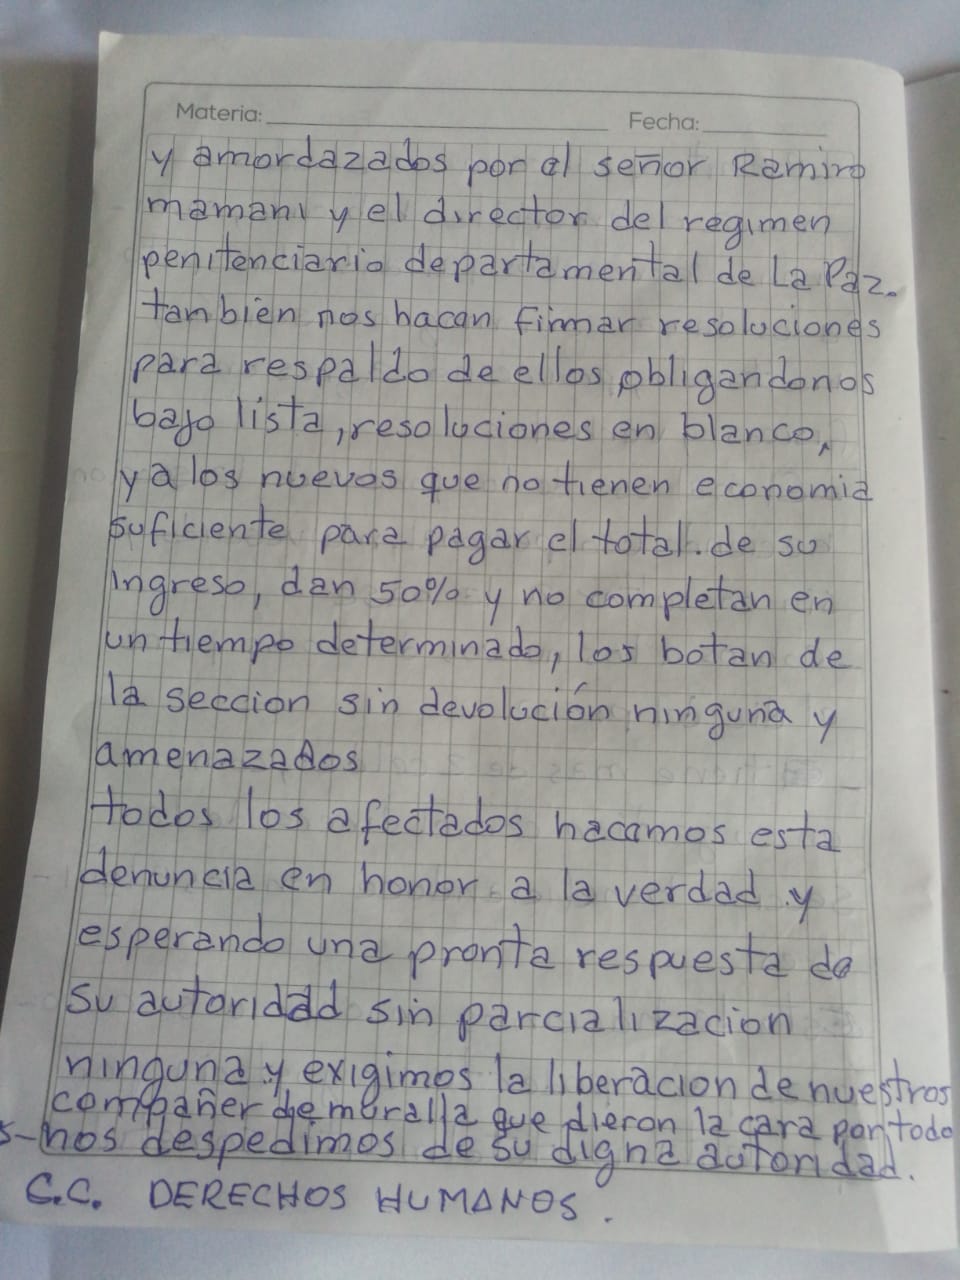 Materia: Fecha:
y amordazados por el señor Ramiro
mamani y el director del regimen
penitenciario departamental de La Paz.
tanbien nos hacen firmar resoluciones
para respaldo de ellos obligandonos
bajo lista, resoluciones en blanco,
y a los nuevos que no tienen economia
suficiente para pagar el total. de su
ingreso, dan 50% y no completan en
un tiempo determinado, los botan de
la seccion sin devolución ninguna y
amenazados
todos los afectados hacemos esta
denuncia en honor a la verdad y
esperando una pronta respuesta de
su autoridad sin parcializacion
ninguna y exigimos la liberacion de nuestros
de muralla que dieron la cara por todo
s-nos despedimos de su digna autoridad.
C.C. DERECHOS HUMANOS.